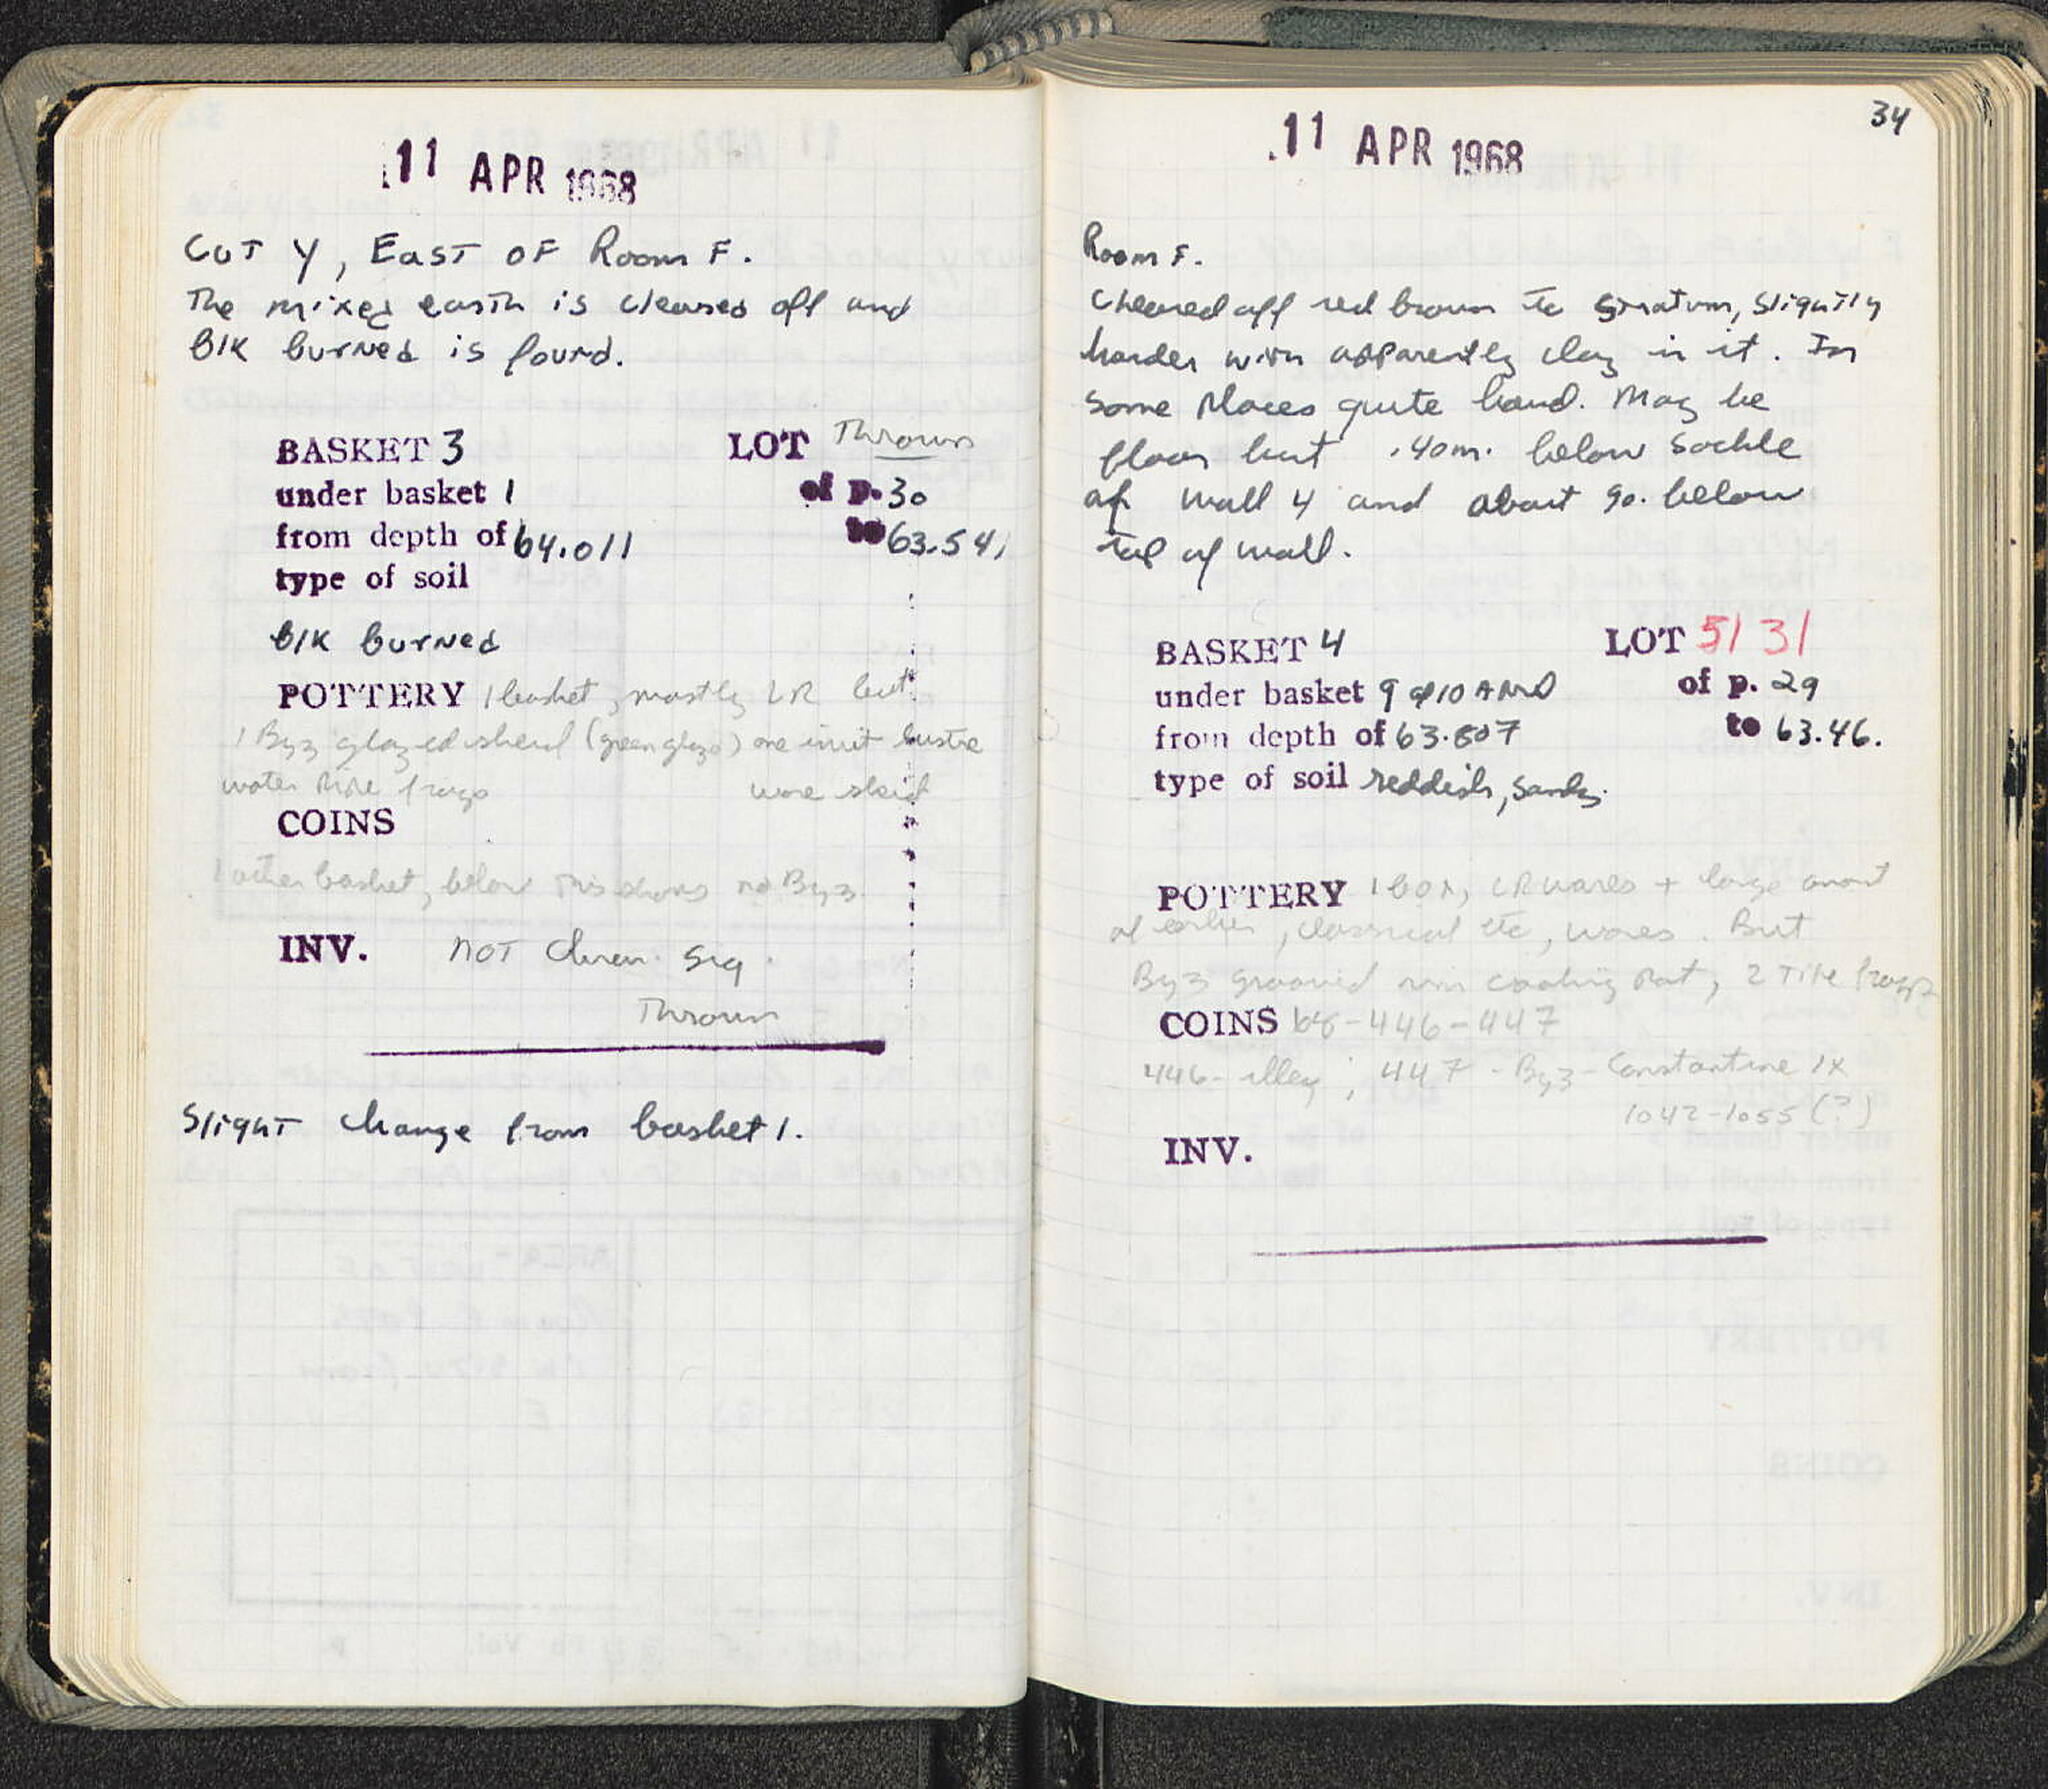 11 APR 1968
CUT Y, EAST OF Room F.
The mixed earth is cleared off and
blk burned is found.
BASKET 3 LOT Thrown
under basket 1 of p. 30
from depth of 64.011 to 63.541
type of soil
blk burned
POTTERY 1 basket, mostly LR but
1 Byz glazed sherd (green glaze) one lustre
water pipe frags ware sherd
COINS
1 other basket, below this shows no Byz.
INV. NOT chron. sig.
Thrown
Slight change from basket 1.
34
11 APR 1968
Room F.
Cleared off red brown to stratum, slightly
harder with apparently clay in it. In
some places quite hard. May be
floor but .40m. below socle
of wall 4 and about 90. below
top of wall.
BASKET 4 LOT 51 31
under basket 9 of 10 AMD of p. 29
from depth of 63.807 to 63.46.
type of soil reddish, sandy.
POTTERY 1 box, LR wares + large amount
of earlier, classical etc, wares. But
Byz grooved rim cooking pot, 2 pipe frags
COINS 68-446-447
446- illeg; 447 - Byz - Constantine IX
1042-1055 (?)
INV.